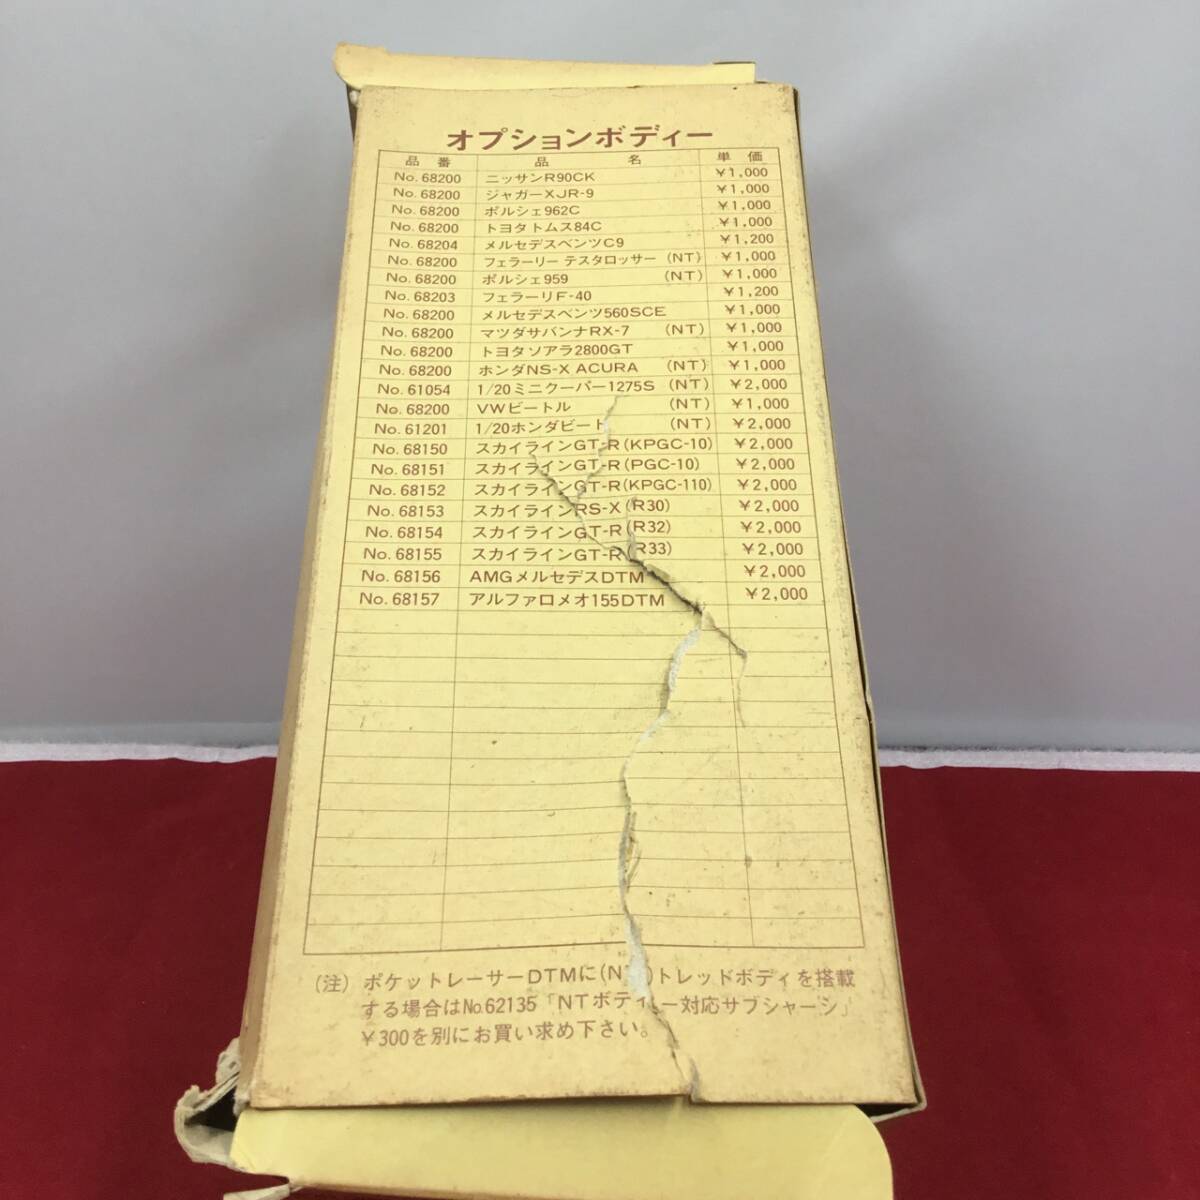 オプションボディー
品番 品名 単価
No.68200 ニッサンR90CK ¥1,000
No.68200 ジャガーXJR-9 ¥1,000
No.68200 ポルシェ962C ¥1,000
No.68200 トヨタトムス84C ¥1,000
No.68204 メルセデスベンツC9 ¥1,200
No.68200 フェラーリー テスタロッサー (NT) ¥1,000
No.68200 ポルシェ959 (NT) ¥1,000
No.68203 フェラーリF-40 ¥1,200
No.68200 メルセデスベンツ560SCE ¥1,000
No.68200 マツダサバンナRX-7 (NT) ¥1,000
No.68200 トヨタソアラ2800GT ¥1,000
No.68200 ホンダNS-X ACURA (NT) ¥1,000
No.61054 1/20ミニクーパー1275S (NT) ¥2,000
No.68200 VWビートル (NT) ¥1,000
No.61201 1/20ホンダビート (NT) ¥2,000
No.68150 スカイラインGT-R(KPGC-10) ¥2,000
No.68151 スカイラインGT-R(PGC-10) ¥2,000
No.68152 スカイラインGT-R(KPGC-110) ¥2,000
No.68153 スカイラインRS-X(R30) ¥2,000
No.68154 スカイラインGT-R(R32) ¥2,000
No.68155 スカイラインGT-R(R33) ¥2,000
No.68156 AMGメルセデスDTM ¥2,000
No.68157 アルファロメオ155DTM ¥2,000
(注) ポケットレーサーDTMに(NT)トレッドボディを搭載
する場合はNo.62135「NTボディー対応サブシャーシ」
¥300を別にお買い求め下さい。